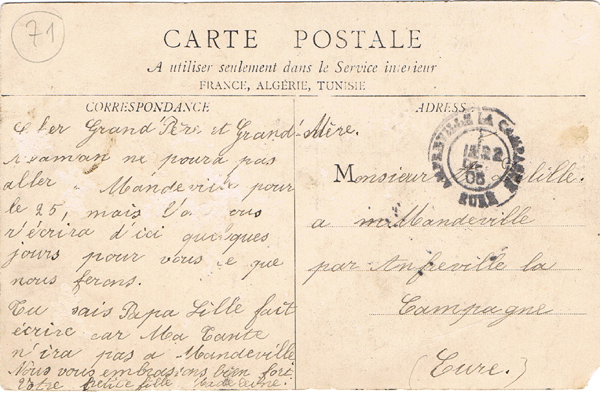 71
CARTE POSTALE
A utiliser seulement dans le Service intérieur
FRANCE, ALGÉRIE, TUNISIE
CORRESPONDANCE
Cher Grand'Père et Grand'Mère.
Maman ne poura pas
aller a Mandeville pour
le 25, mais
n'écrira d'ici quelques
jours pour vous ce que
nous ferons.
Tu sais Papa Lille fait
écrire car Ma Tante
n'ira pas a Mandeville
Nous vous embrassons bien fort
Votre petite fille
ADRESSE
AMFREVILLE LA CAMPAGNE
22
05
EURE
Monsieur Lille.
a Mandeville
par Anfreville la
Campagne
(Eure.)